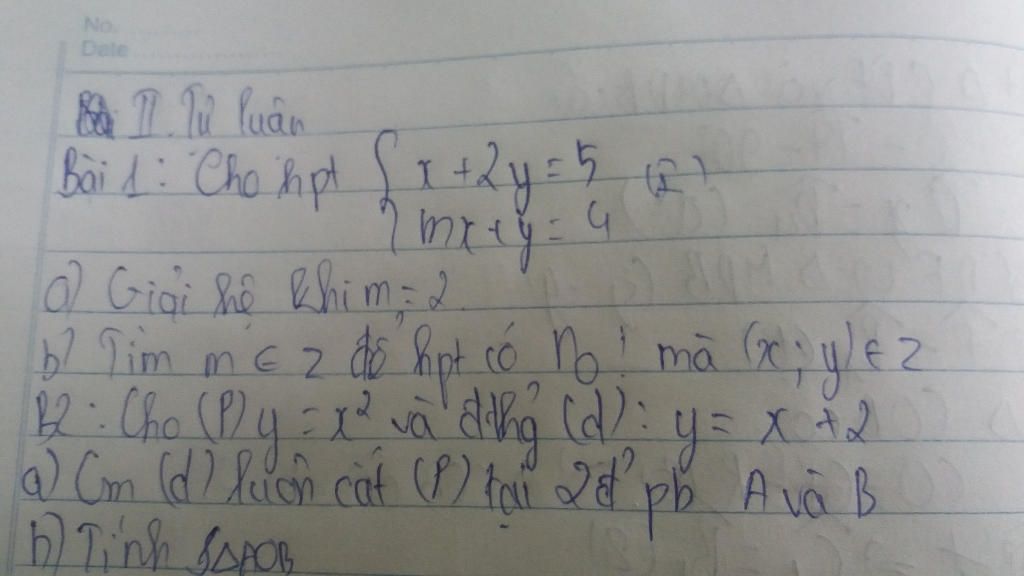 No.
Date
II. Tự luận
Bài 1: Cho hpt { x + 2y = 5 (I)
mx + y = 4
a) Giải hệ khi m = 2
b) Tìm m ∈ Z để hpt có n₀! mà (x; y) ∈ Z
B2: Cho (P) y = x² và đthg (d): y = x + 2
a) Cm (d) luôn cắt (P) tại 2đ' pb A và B
b) Tính S△AOB